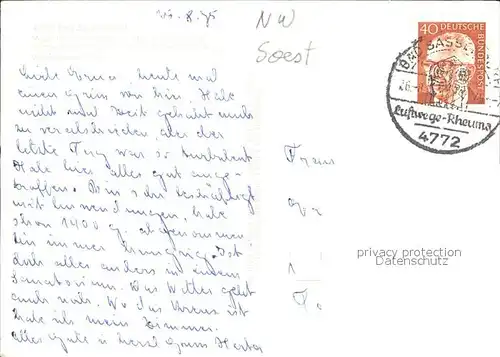 26.8.75
NW
Soest
40
DEUTSCHE BUNDESPOST
BAD SASSENDORF
Luftwege-Rheuma
4772
Liebe Erna, heute mal
einen Gruß von hier. Habe
nicht mal Zeit gehabt mich
zu verabschieden aber der
letzte Tag war so turbulent
Habe hier alles gut ange-
troffen. Bin sehr beschäftigt
mit Anwendungen, habe
schon 1400 g abgenommen
bin immer hungrig. Ist
doch alles anders in einem
Sanatorium. Das Wetter geht
auch noch. Wo das Kreuz ist
habe ich mein Zimmer.
Alles Gute u. herzl. Gruß Herta
Frau
privacy protection
Datenschutz